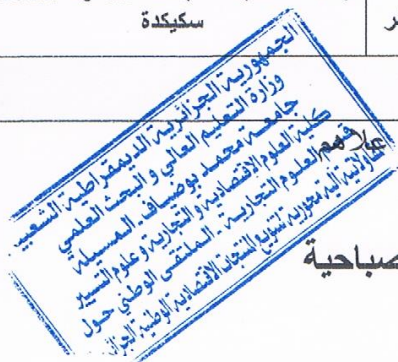 سكيكدة
ر
الجمهورية الجزائرية الديمقراطية الشعبي
وزارة التعليم العالي و البحث العلمي
جامعة محمد بوضياف المسيلة
كلية العلوم الاقتصادية و التجارية و علوم التسيير
قسم العلوم التجارية - الملتقى الوطني حول
آلية محورية لتنويع المنتجات الاقتصادية الوطنية الجزائر
علاهم
صباحية